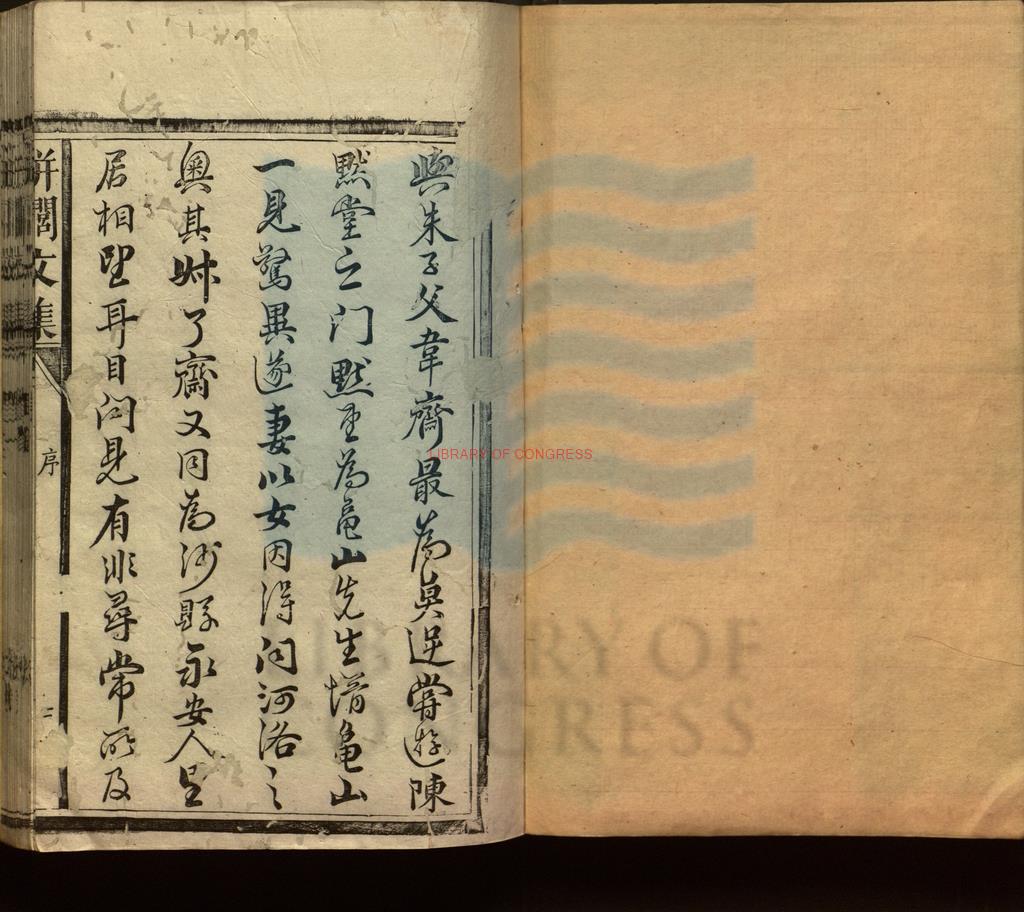 與朱子父韋齋最為莫逆嘗遊陳
默堂之门默堂為龜山先生壻龜山
一見驚異遂妻以女因得闻河洛之
奧其於了齋又同為沙縣永安人里
居相望耳目闻見有非尋常所及
栟櫚文集
序
二
LIBRARY OF CONGRESS
LIBRARY OF
CONGRESS